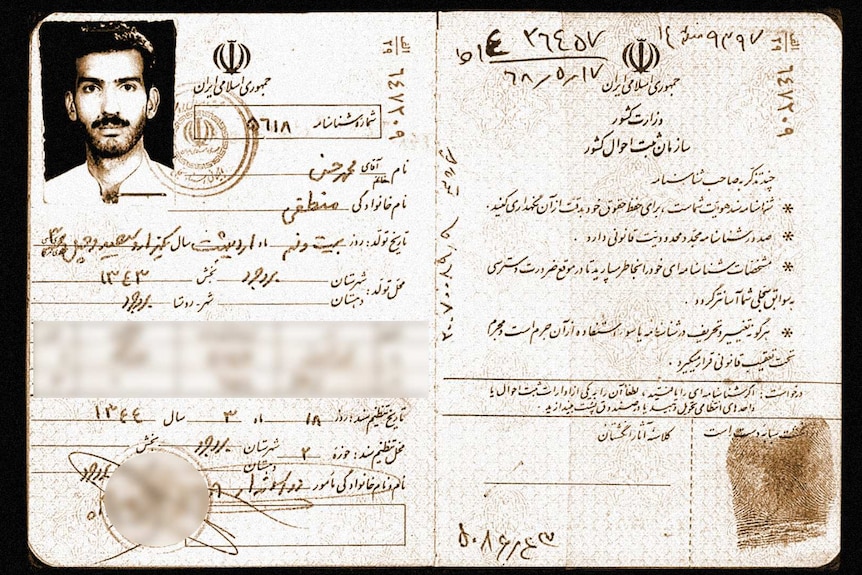 جمهوری اسلامی ایران
الف ۲۹
۶۴۷۲۰۹
شماره شناسنامه ۵۶۱۸
نام آقای خانم محمدحسن
نام خانوادگی منطقی
تاریخ تولد: روز بیست و نهم ماه اردیبهشت سال یکهزار و سیصد و چهل
محل تولد: شهرستان بروجرد بخش ۱۳۴۳
دهستان شهر-روستا بروجرد
تاریخ تنظیم سند: روز ۱۸ ماه ۳ سال ۱۳۴۴
محل تنظیم سند: حوزه ۲ شهرستان بروجرد بخش
دهستان بروجرد
نام و نام خانوادگی مأمور
۳۶۴۵۷
۶۸/۵/۱۷
۹۳۹۷
الف ۲۹
۶۴۷۲۰۹
جمهوری اسلامی ایران
وزارت کشور
سازمان ثبت احوال کشور
چند تذکر به صاحب شناسنامه
* شناسنامه سند هویت شماست، برای حفظ حقوق خود بدقت از آن نگهداری کنید.
* صدور شناسنامه مجدد محدودیت قانونی دارد.
* مشخصات شناسنامه ای خود را بخاطر بسپارید تا در موقع ضرورت دسترسی
به سوابق سجلی شما آسانتر گردد.
* هرگونه تغییر و تحریف در شناسنامه یا سوء استفاده از آن جرم است و مجرم
تحت تعقیب قانونی قرار میگیرد.
درخواست: اگر شناسنامه ای را یافتید، لطفاً آن را به یکی از ادارات ثبت احوال یا
واحدهای انتظامی تحویل دهید یا در صندوق پست بیندازید.
کلاسه آثار انگشتان
انگشت سبابه دست است